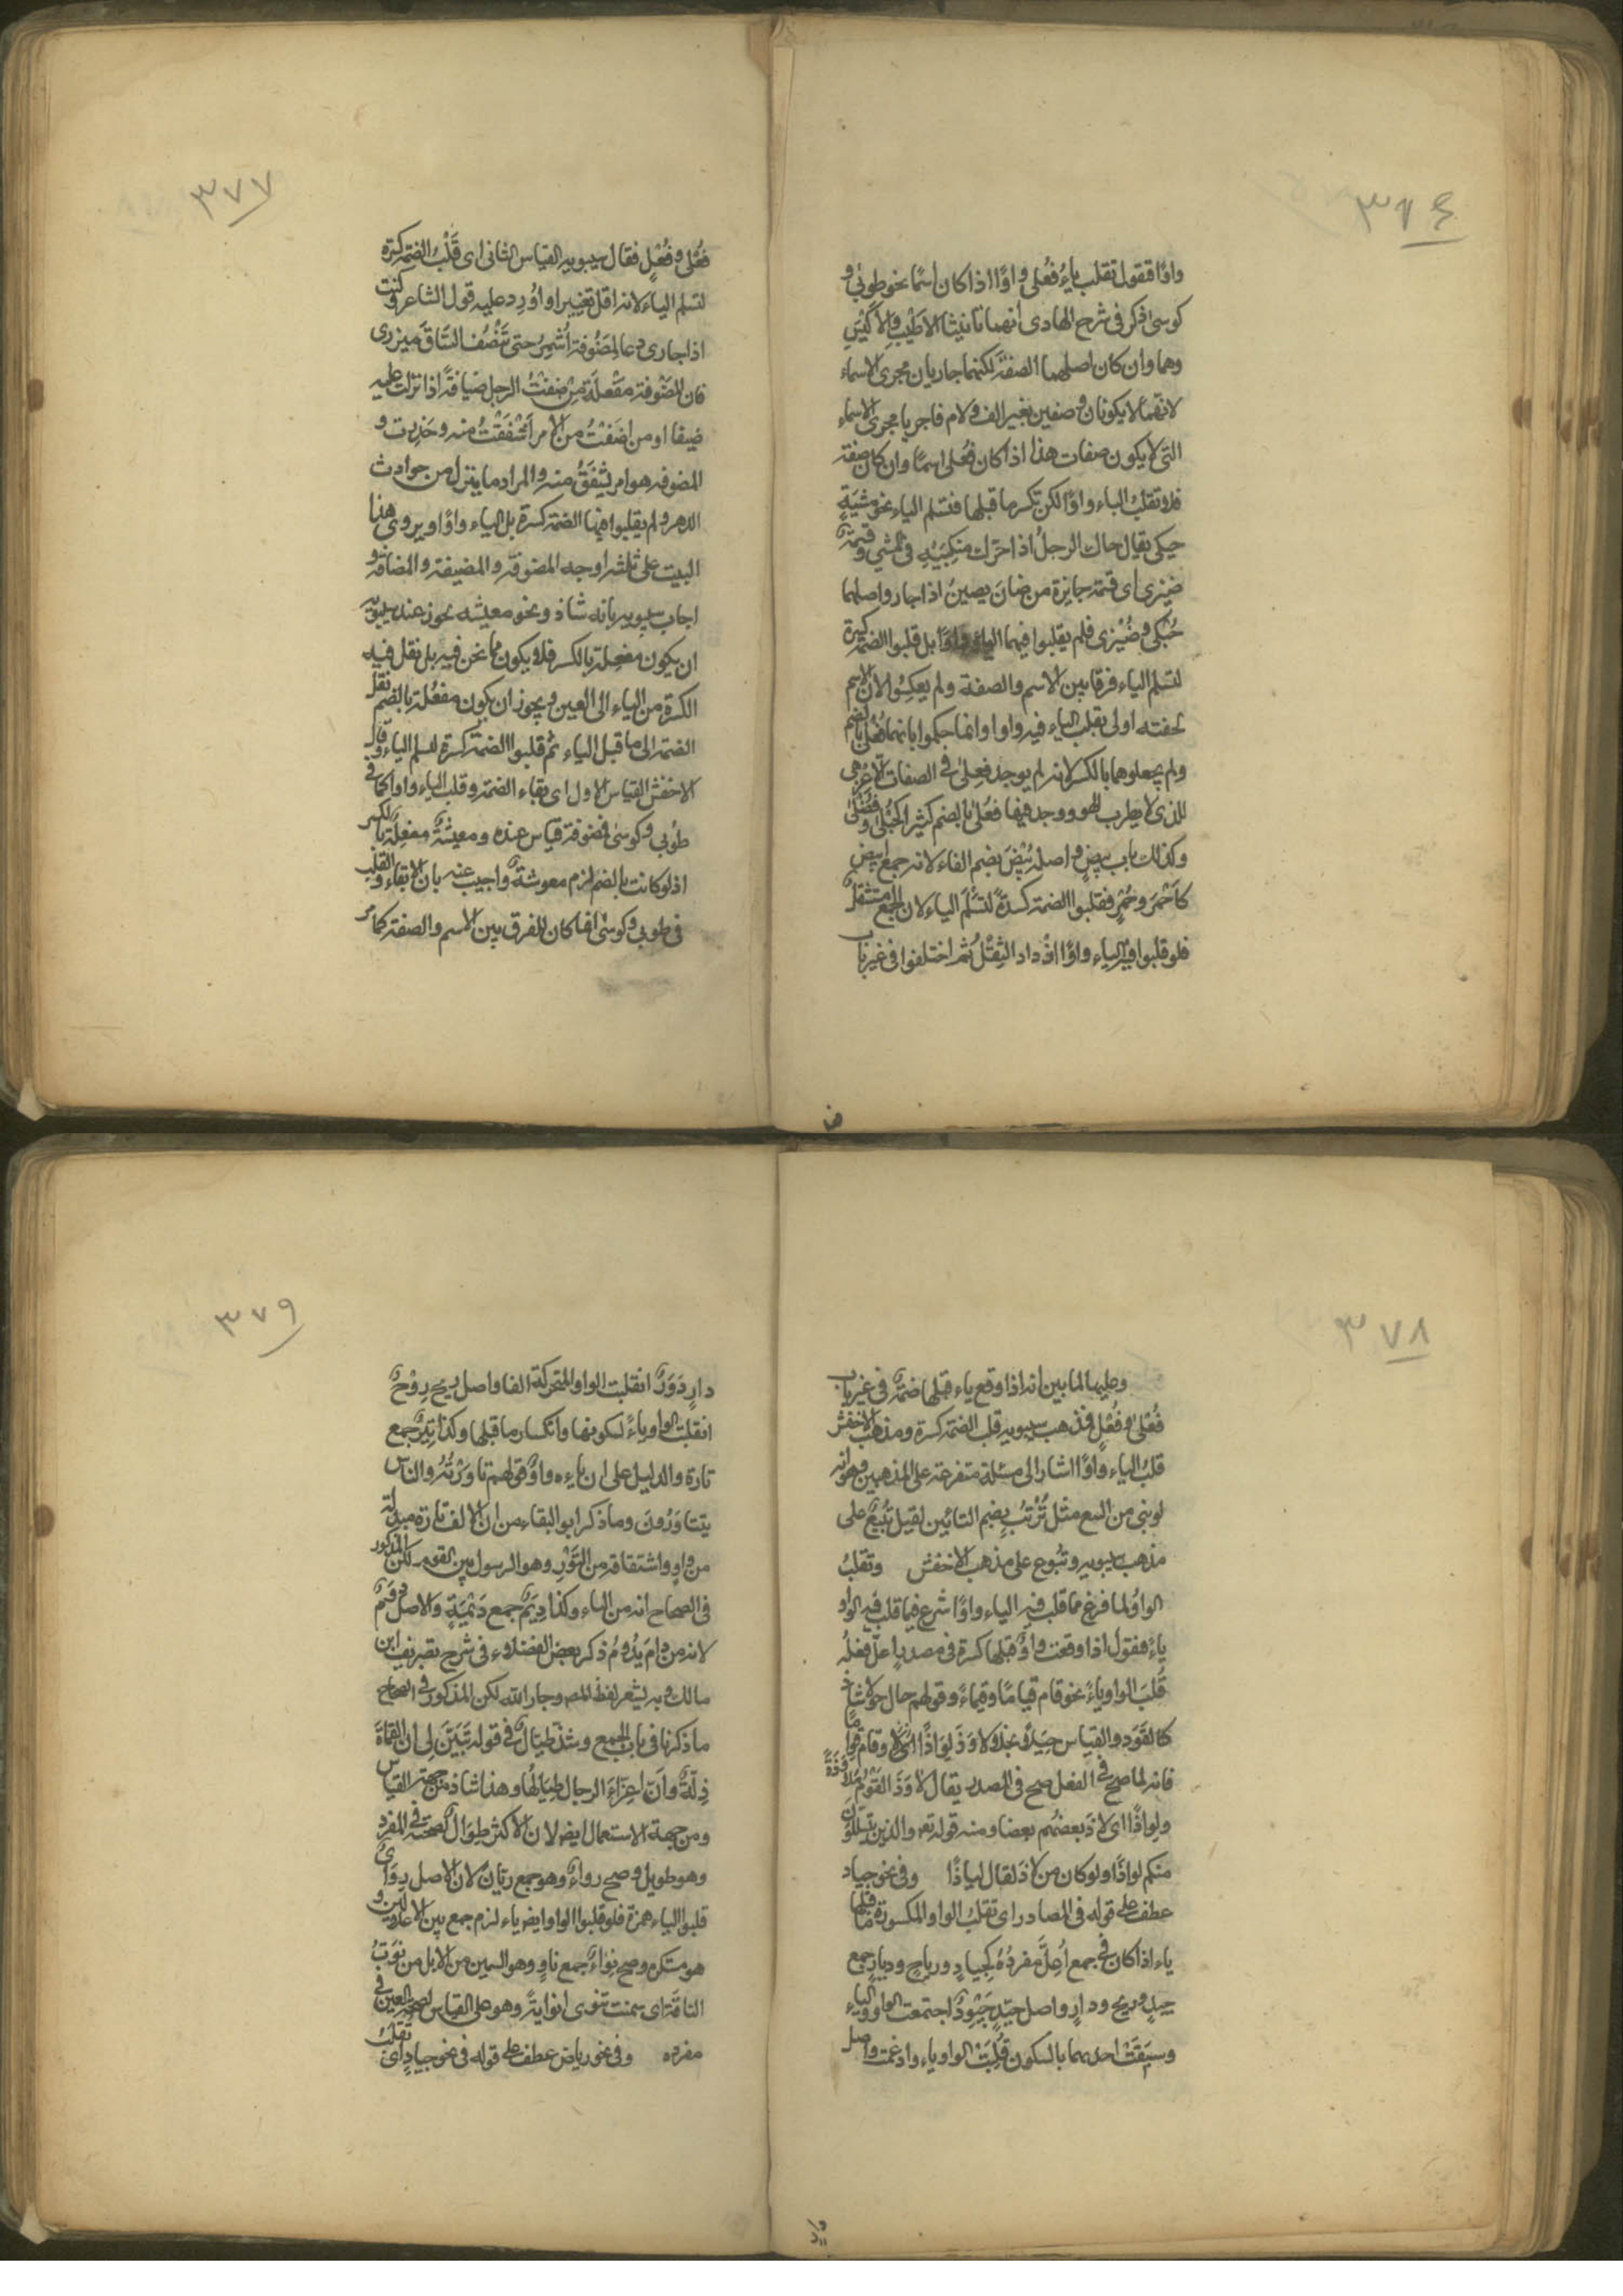 ٣٧٦
واوًا فنقول تقلب ياءُ فُعْلى واوًا اذا كان اسمًا نحو طوبى و
كوسى ذكر فى شرح الهادى أنهما تانيثا الاَطْيب والاَكْيَس
وهما وان كان اصلهما الصفةَ لكنهما جاريان مجرى الاسماء
لانهما لا يكونان وصفين بغير الف ولام فاجريا مجرى الاسماء
التى لا يكون صفات هذا اذا كان فُعْلى اسمًا وان كان صفة
فلا تقلب الياء واوًا لكن تكسر ما قبلها فتسلم الياء نحو مشيَةٍ
حيكى يقال حاك الرجلُ اذا حرّك منكِبَيْهِ فى المشي وقسمةٌ
ضيزى اى قسمة جايزة من ضاز يضيزُ اذا جار واصلهما
حُيْكى وضُيْزى فلم يقلبوا فيهما الياء واوًا بل قلبوا الضمة كسرة
لتسلم الياء فرقا بين الاسم والصفة ولم يعكسُوا لان الاسم
لخفته اولى بقلب الياء فيه واوا وانما حكموا بانهما فُعْلى بالضم
ولم يجعلوهما بالكسر لانه لم يوجد فِعلى فى الصفات الا عِزْهى
للذى لا يطرب للهو ووجد فيها فُعلى بالضم كثيرا كحُبْلى وفُضْلى
وكذلك باب بيضٍ واصله بُيْضٌ بضم الفاء لانه جمع ابيض
كاَحْمَر وحُمْرٍ فقلبوا الضمة كسرةً لتَسْلَمَ الياء لان الجمع مستثقلٌ
فلو قلبوا فيه الياء واوًا ازداد الثِقْلُ ثم اختلفوا فى غير باب
٣٧٧
فُعْلى وفُعْلٍ فقال سيبويه القياس الثانى اى قَلْبُ الضمة كسرة
لتسلم الياء لانه اقل تغييرا واُوْرِد عليه قول الشاعر وكنت
اذا جارى دعا لمَضُوفةٍ اُشَمِّرُ حتى يَنْصُفَ السّاقَ ميزرى
فان المَضُوفة مَفْعُلَةٌ مِن ضِفْتُ الرجل ضيافةً اذا نزلت عليه
ضيفا او من اضَفْتُ من الامر اَشْفَقْتُ منه وحَذِرت و
المضوفه هو امر يُشْفَقُ منه والمراد ما ينزل من حوادث
الدهر ولم يقلبوا فيها الضمة كسرة بل الياء واوًا ويروى هذا
البيت على ثلثة اوجه المضوفة والمضيفة والمضافة و
اجاب سيبويه بانه شاذ ونحو معيشه يجوز عند سيبويه
ان يكون مفعِلة بالكسر فلا يكون مما نحن فيه بل نقل فيه
الكسرة من الياء الى العين ويجوز ان يكون مفعُلة بالضم نقل
الضمة الى ما قبل الياء ثم قلبوا الضمة كسرة لتسلم الياء وقال
الاخفش القياس الاول اى بقاء الضمة وقلب الياء واوا كما فى
طُوبى وكوسى فمضوفة قياس عنده ومعيشةٌ مفعِلةٌ بالكسر
اذ لو كانت بالضم لزم معوشةٌ واجيب عنه بان الابقاء والقلب
فى طوبى وكوسى انما كان للفرق بين الاسم والصفة كما مر
٣٧٨
وعليهما لما بين انه اذا وقع ياء قبلها ضمةٌ فى غير باب
فُعْلى وفُعْلٍ فمذهب سيبويه قلب الضمة كسرة ومذهب الاخفش
قلبُ الياء واوًا اشار الى مسئلة متفرعة على المذهبين وهو انه
لو بنى من البيع مثل تُرْتُب بضم التائين لقيل تُبِيعٌ على
مذهب سيبويه وتُبُوع على مذهب الاخفش وتقلبُ
الواوُ لما فرغ مما قلب فيه الياء واوًا شرع فيما قلب فيه الواو
ياءً فنقول اذا وقعت واوٌ قبلها كسرة فى مصدرٍ اعلّ فعلُه
قُلبَ الواو ياءً نحو قام قيامًا وقِيَمًا وقولهم حال حِوَلا شاذ
كالقَوَد والقياس حِيَلاً بخلاف لاوَذَ لِوَاذًا وقاوم قواما
فانه لما صح فى الفعل صح فى المصدر يقال لاوَذَ القَوْمُ ملاوذةً
ولِواذًا اى لاذ بعضُهم ببعضا ومنه قوله تع والذين يتسللون
منكم لواذًا ولو كان من لاذ لقال لياذًا وفى نحو جياد
عطف على قوله فى المصادر اى تقلب الواو المكسورة ما قبلها
ياء اذا كان فى جمع اُعِلَّ مفردُهُ كجِيادٍ ورياحٍ ودِيارٍ جمع
جيدٍ وريح ودارٍ واصل جيّدٍ جَيْوِدٌ اجتمعت الواو والياء
وسبَقَتْ احدهما بالسكون قُلِبَتْ الواو ياء وادغمت واصل
٣٧٩
دارٍ دَوَرٌ انقلبت الواو المتحركة الفا واصل ريح رِوْحٌ
انقلبت الواو ياءً لسكونها وانكسار ما قبلها وكذا تِيَرٌ جمع
تارة والدليل على ان ياءه واوٌ قولهم تاوَرْتُه والناس
يتتاوَرُونَ وما ذكر ابو البقاء من ان الالف تارة مبدلة
من واوٍ واشتقاقه من التَّوْرِ وهو الرسول بين القوم لكن المذكور
فى الصحاح انه من الياء وكذا دِيَمٌ جمع دَيْمَةٍ والاصل دِوَمٌ
لانه من دامَ يدُومُ ذكر بعض الفضلاء فى شرح تصريف ابن
مالك وبه يشعر لفظ المص وجار الله لكن المذكور فى الصحاح
ما ذكرنا فى باب الجمع وشذ طِيَالٌ فى قوله تبَيّنَ لى ان القَماةَ
ذِلّةٌ وانّ اعِزّاءَ الرجال طِيَالُها وهذا شاذ من جهة القياس
ومن جهة الاستعمال ايضه لان الاكثر طِوَالٌ لصحته فى المفرد
وهو طويل وصح رواءٌ وهو جمع ريّان لان الاصل رِوَاىٌ
قلبوا الياء همزة فلو قلبوا الواو ايضه ياء لزم جمع بين الاعلالين و
هو مستكره وصح نِوَاءٌ جمع ناوٍ وهو السمين من الابل من نَوَتْ
الناقةُ اى سمنت تنوى نوايةً وهو على القياس لصحة العين فى
مفرده وفى نحو رياض عطف على قوله فى نحو جيادٍ اى تقلبُ